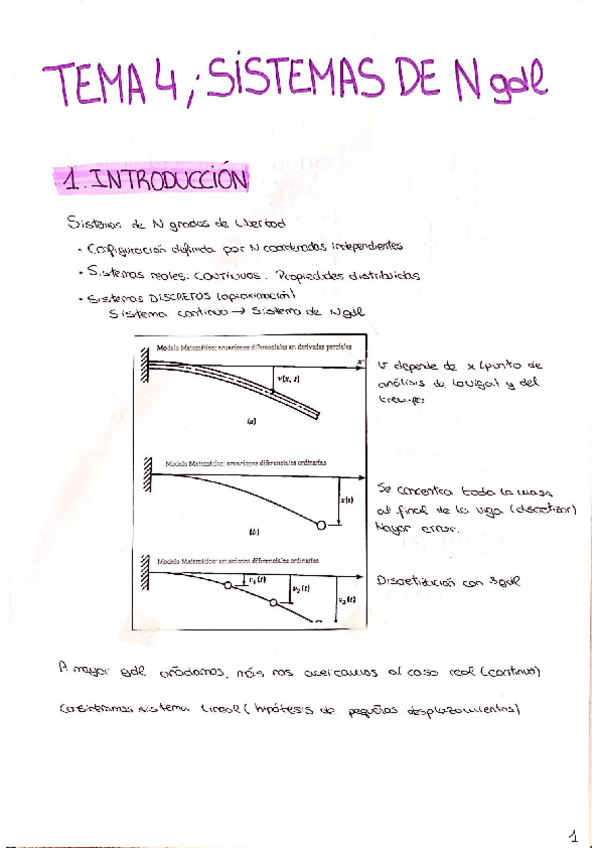 TEMA 4; SISTEMAS DE N gdl
1. INTRODUCCIÓN
Sistemas de N grados de libertad
· Configuración definida por N coordenadas independientes
· Sistemas reales: CONTINUOS. Propiedades distribuidas
· Sistemas DISCRETOS (aproximación)
Sistema continuo → Sistema de N gdl
Modelo Matemático: ecuaciones diferenciales en derivadas parciales
x
v(x, t)
(a)
v depende de x (punto de
análisis de la viga) y del
tiempo
Modelo Matemático: ecuaciones diferenciales ordinarias
x(t)
(b)
Se concentra toda la masa
al final de la viga (discretizar)
Mayor error.
Modelo Matemático: ecuaciones diferenciales ordinarias
v₁(t)
v₂(t)
v₃(t)
Discretización con 3 gdl
A mayor gdl añadamos, más nos acercamos al caso real (continuo)
Consideramos sistema lineal (hipótesis de pequeños desplazamientos)
1